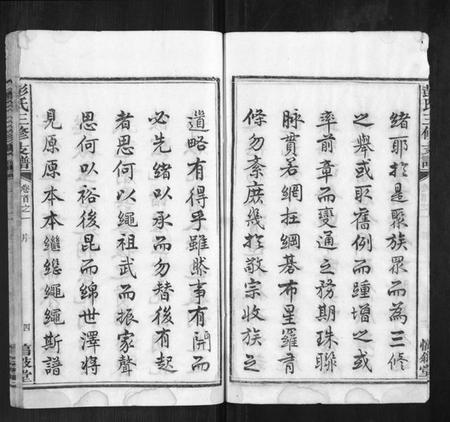 緒耶於是聚族眾而為三修
之舉或取舊例而踵增之或
率前章而變通之務期珠聯
脉貫若網在綱棊布星羅有
條勿紊庶幾於敬宗收族之
彭氏三修支譜
遺略有得乎雖然事有開而
必先緒以承而勿替後有起
者思何以繩祖武而振家聲
思何以裕後昆而綿世澤將
見原原本本繼繼繩繩斯譜
彭氏三修支譜
卷首之一
四